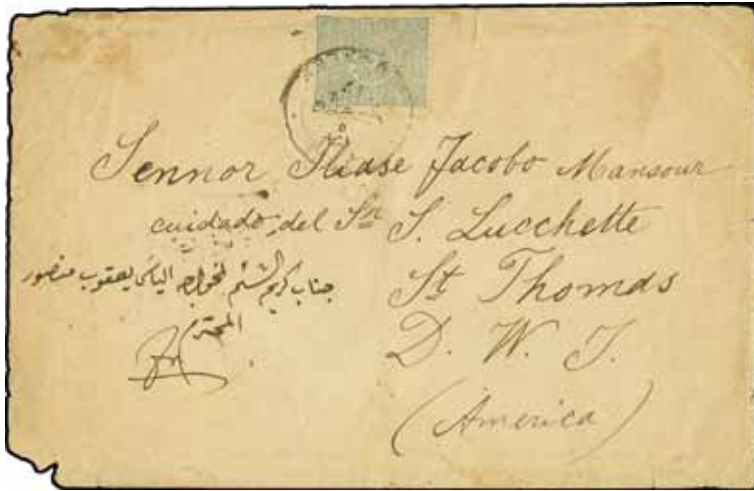 Sennor Iliase Jacobo Mansour
cuidado del Sr S. Lucchette
St Thomas
D. W. I.
(America)
جناب كريم الشيم الخواجه الياس يعقوب منصور
المحترم